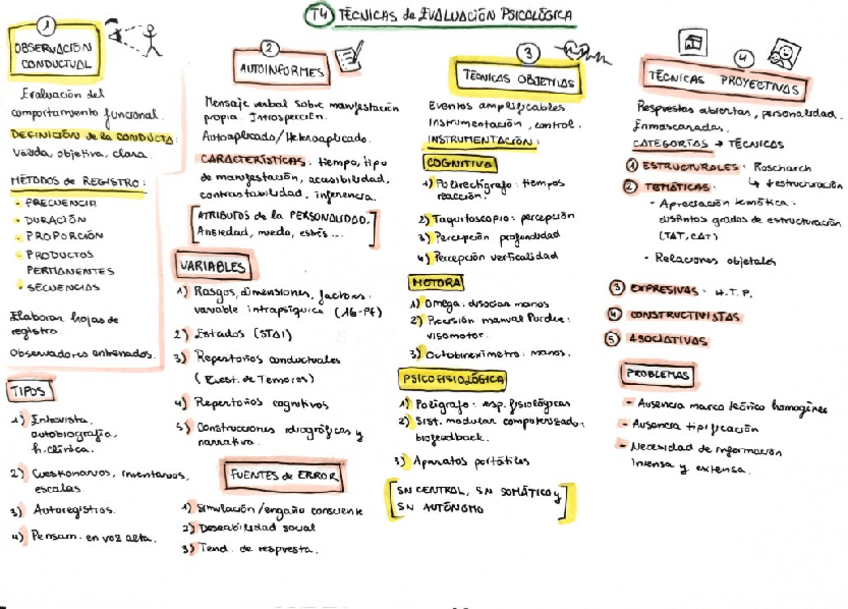 T4 TÉCNICAS de EVALUACIÓN PSICOLÓGICA
1
OBSERVACIÓN
CONDUCTUAL
Evaluación del
comportamiento funcional.
DEFINICIÓN de la CONDUCTA:
Válida, objetiva, clara.
MÉTODOS de REGISTRO:
- FRECUENCIA
- DURACIÓN
- PROPORCIÓN
- PRODUCTOS
PERMANENTES
- SECUENCIAS
Elaborar hojas de
registro.
Observadores entrenados.
TIPOS
1) Entrevista,
autobiografía,
h. clínica.
2) Cuestionarios, inventarios,
escalas
3) Autoregistros.
4) Pensam. en voz alta.
2
AUTOINFORMES
Mensaje verbal sobre manifestación
propia. Introspección.
Autoaplicado/Heteroaplicado.
CARACTERÍSTICAS: tiempo, tipo
de manifestación, accesibilidad,
contrastabilidad, inferencia.
ATRIBUTOS de la PERSONALIDAD.
Ansiedad, miedo, estrés...
VARIABLES
1) Rasgos, dimensiones, factores:
variable intrapsíquica (16-PF)
2) Estados (STAI)
3) Repertorios conductuales
(Cuest. de Temores)
4) Repertorios cognitivos
5) Construcciones idiográficas y
narrativa.
FUENTES de ERROR
1) Simulación/engaño consciente
2) Deseabilidad social
3) Tend. de respuesta.
3
TÉCNICAS OBJETIVAS
Eventos amplificables
Instrumentación, control.
INSTRUMENTACIÓN:
COGNITIVA
1) Polireactígrafo: tiempos
reacción.
2) Taquitoscopio: percepción
3) Percepción profundidad
4) Percepción verticalidad
MOTORA
1) Omega: disocias manos
2) Precisión manual Purdue:
visomotor.
3) Outobinexímetro: manos.
PSICOFISIOLÓGICA
1) Polígrafo: resp. fisiológicas
2) Sist. modular computerizado:
biofeedback.
3) Aparatos portátiles
SN CENTRAL, SN SOMÁTICO y
SN AUTÓNOMO
4
TÉCNICAS PROYECTIVAS
Respuestas abiertas, personalidad.
Enmascaradas.
CATEGORÍAS → TÉCNICAS
1 ESTRUCTURALES: Roscharch
↳ ↓estructuración
2 TEMÁTICAS:
- Apreciación temática:
distintos grados de estructuración
(TAT, CAT)
- Relaciones objetales
3 EXPRESIVAS: H.T.P.
4 CONSTRUCTIVISTAS
5 ASOCIATIVAS
PROBLEMAS
- Ausencia marco teórico homogéneo
- Ausencia tipificación
- Necesidad de información
intensa y extensa.